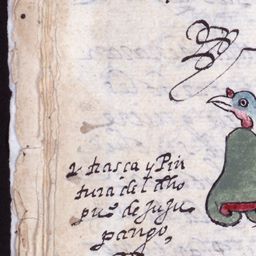 traça y Pin
tura del dho
puo de juju
pango,